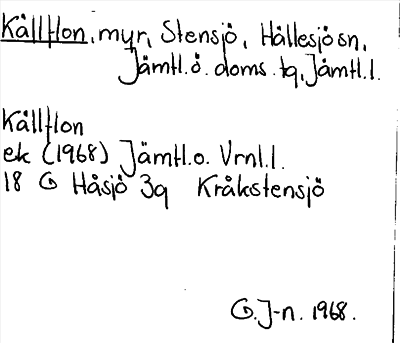 Källflon, myr, Stensjö, Hällesjö sn,
Jämtl.ö. doms. tg, Jämtl.l.
Källflon
ek (1968) Jämtl.o. Vrnl.l.
18 G Håsjö 3g Kråkstensjö
G.J-n. 1968.